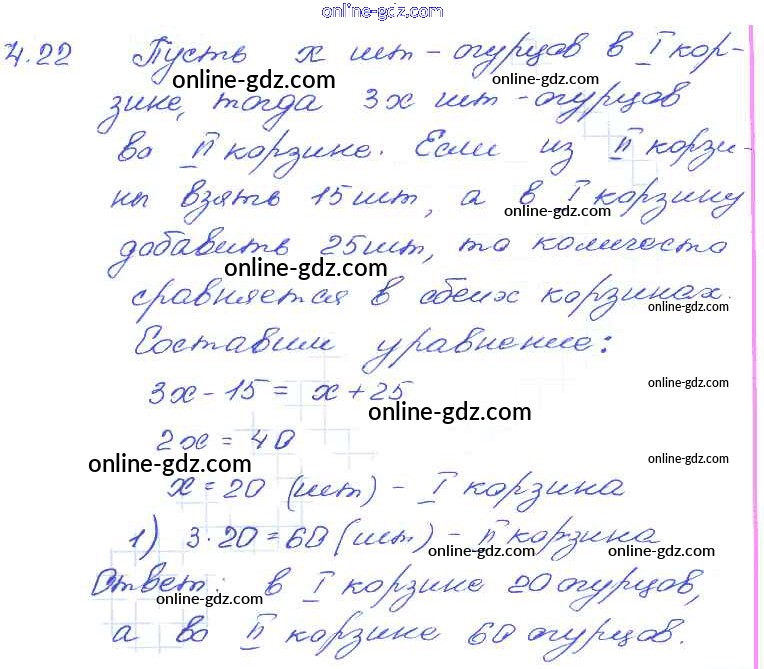 online-gdz.com
4.22 Пусть x шт - огурцов в I кор-
online-gdz.com online-gdz.com
зине, тогда 3x шт - огурцов
во II корзине. Если из II корзи-
ны взять 15 шт, а в I корзину
online-gdz.com
добавить 25 шт, то количество
online-gdz.com
сравняется в обеих корзинах.
online-gdz.com
Составим уравнение:
3x - 15 = x + 25
online-gdz.com
online-gdz.com
2x = 40
online-gdz.com online-gdz.com
x = 20 (шт) - I корзина
1) 3 · 20 = 60 (шт) - II корзина
online-gdz.com online-gdz.com
Ответ: в I корзине 20 огурцов,
online-gdz.com
а во II корзине 60 огурцов.
online-gdz.com